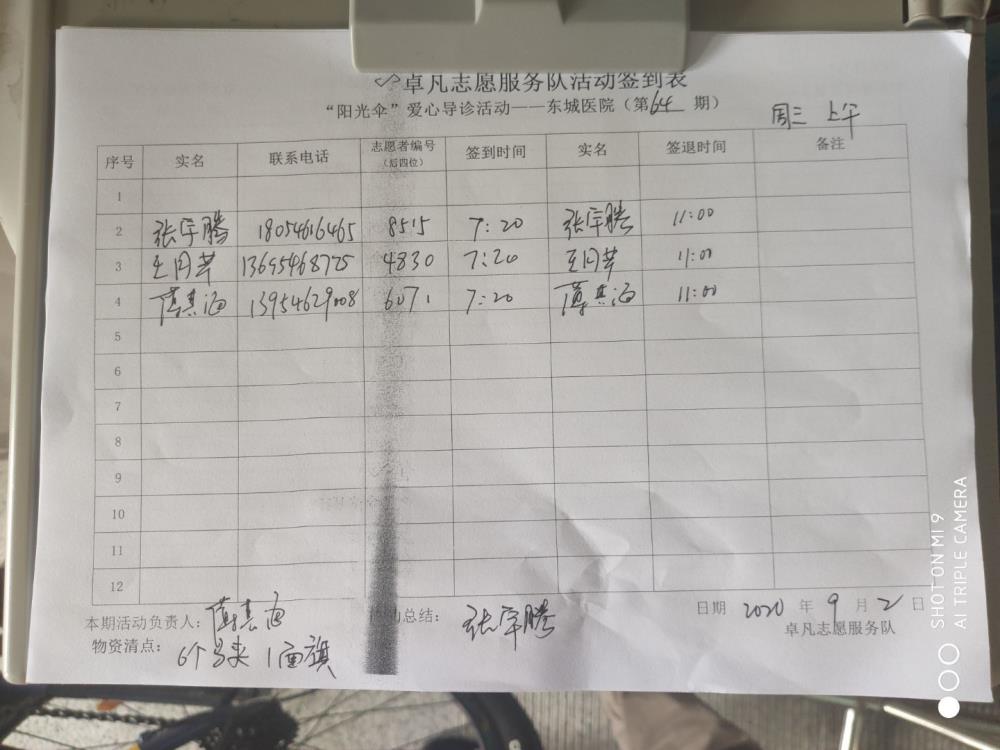 卓凡志愿服务队活动签到表
“阳光伞”爱心导诊活动——东城医院（第64期）
周三 上午
序号 实名 联系电话 志愿者编号（后四位） 签到时间 实名 签退时间 备注
1
2 张宇腾 18054616465 8515 7:20 张宇腾 11:00
3 13695468775 4830 7:20 11:00
4 薄其海 13954629008 6071 7:20 薄其海 11:00
5
6
7
8
9
10
11
12
本期活动负责人：薄其海 动总结：张宇腾 日期 2020 年 9 月 2 日
物资清点：6个马夹 1面旗 卓凡志愿服务队
SHOT ON MI 9
AI TRIPLE CAMERA